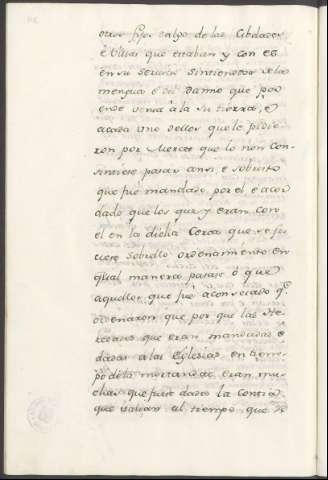 otros fijos dalgo de las Cibdades,
è Villas que estaban y con el
en su servicio sintiendose de la
mengua è del danno que por
ende venia à la su tierra, è
acada uno dellos que le pidie
ron por merced que lo non con
sintiese pasar ansi e sobresto
que fue mandado por el e acor
dado que los que y eran con
el en la dicha Cerca que se fi
ciese sobrello ordenamiento en
qual manera pasase ò que
aquellos que fue aconsejado q.e
ordenaron que por que las He
redades que eran mandadas è
dadas a las Eglesias en tiem
po de la mortandad eran mu
chas que fuese dado la contia
que valian al tiempo que se